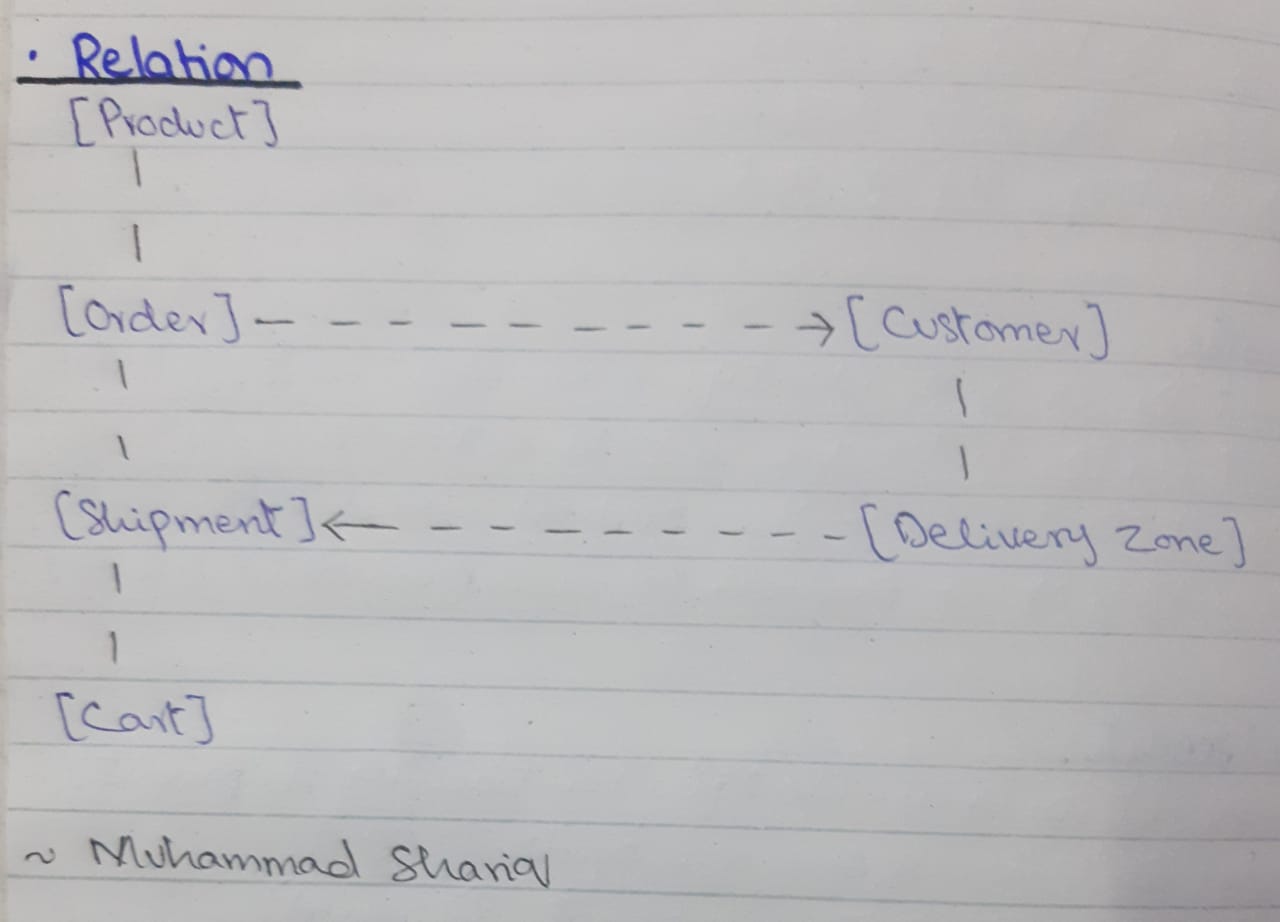 · Relation
[Product]
[Order] - - - - - - - - -> [Customer]
[Shipment] <- - - - - - - - [Delivery Zone]
[Cart]
~ Muhammad Shariq